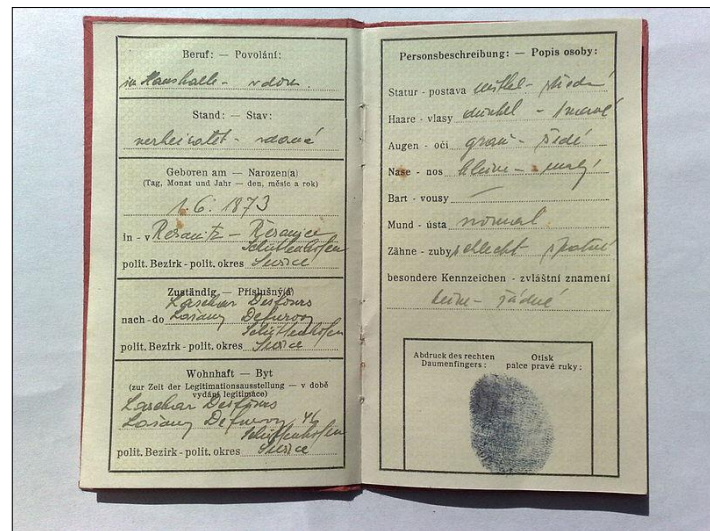 Beruf: — Povolání:
im Haushalte - v dom.
Stand: — Stav:
verheiratet - vdaná
Geboren am — Narozen(a)
(Tag, Monat und Jahr — den, měsíc a rok)
1. 6. 1873
in - v Řesanitz - Řesanice
Schüttenhofen
polit. Bezirk - polit. okres Sušice
Zuständig — Příslušný(á)
Laschan Desfours
nach - do Lažany Defurovy
Schüttenhofen
polit. Bezirk - polit. okres Sušice
Wohnhaft — Byt
(zur Zeit der Legitimationsausstellung — v době
vydání legitimace)
Laschan Desfours
Lažany Defurovy 46
Schüttenhofen
polit. Bezirk - polit. okres Sušice
Personsbeschreibung: — Popis osoby:
Statur - postava mittel - střední
Haare - vlasy dunkel - tmavé
Augen - oči grau - šedé
Nase - nos kleine - malý
Bart - vousy —
Mund - ústa normal
Zähne - zuby schlecht špatné
besondere Kennzeichen - zvláštní znamení
keine - žádné
Abdruck des rechten Daumenfingers:
Otisk palce pravé ruky: